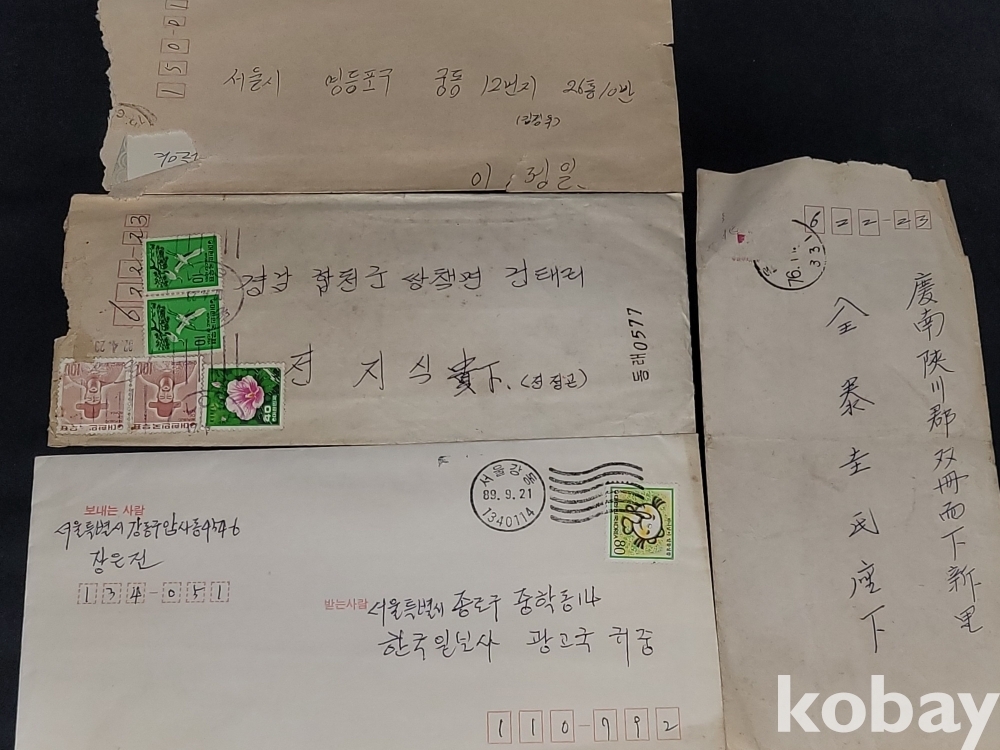 150-01
서울시 영등포구 궁동 12번지 26통10반
이, 정일
622-23
경남 합천군 쌍책면 건태리
전 지 식 貴下.
동래0577
10
10
100
100
40
서울강동
89.9.21
1340114
80
보내는 사람
서울특별시 강동구 암사동
장은진
134-051
받는사람
서울특별시 종로구 중학동14
한국일보사 광고국 귀중
110-792
622-23
76.1
慶南陜川郡双冊面下新里
全泰圭氏座下
kobay